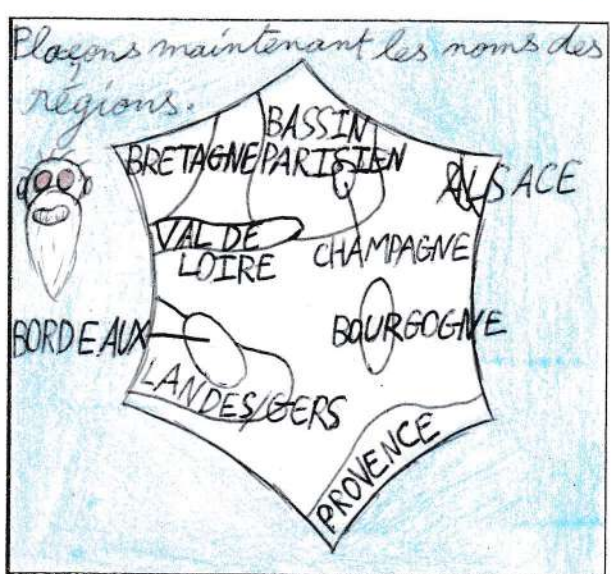 Plaçons maintenant les noms des
régions.
BRETAGNE
BASSIN
PARISIEN
ALSACE
VAL DE
LOIRE
CHAMPAGNE
BORDEAUX
BOURGOGNE
LANDES/GERS
PROVENCE